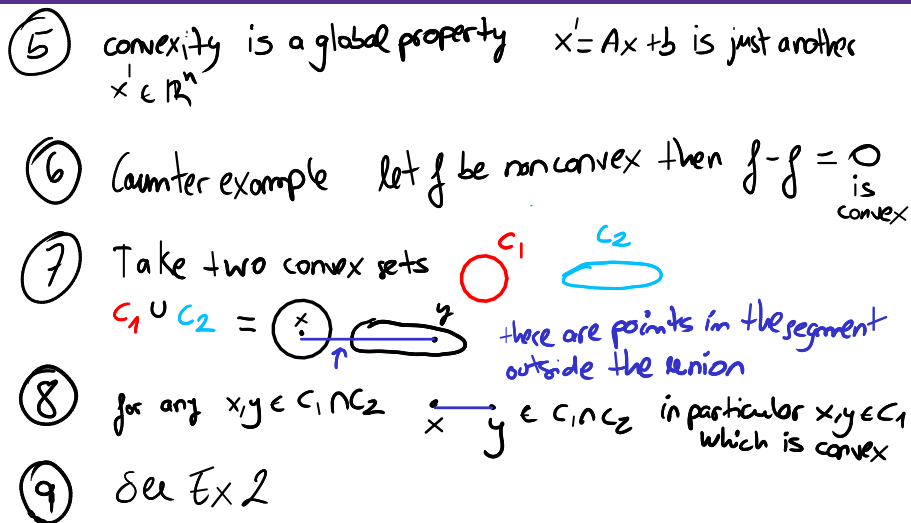 5 convexity is a global property x' = Ax + b is just another
x' ∈ ℝⁿ
6 Counter example let f be nonconvex then f - f = 0
is
convex
7 Take two convex sets C₁ C₂
C₁ ∪ C₂ = x y there are points in the segment
outside the union
8 for any x,y ∈ C₁∩C₂ x y ∈ C₁∩C₂ in particular x,y ∈ C₁
which is convex
9 See Ex 2